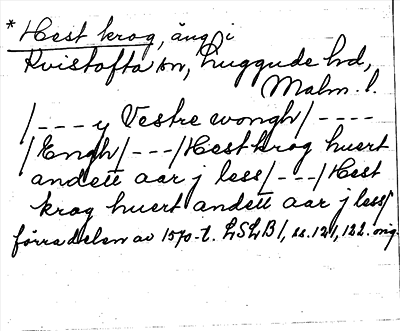 * Hest krog, äng i
Kvistofta sn, Luggude hd,
Malm. l.
/ - - - y Vestre wongh / - - - -
/ Engh / - - - / Hest krog huert
andett aar j less / - - - / Hest
krog huert andett aar j less /
förra delen av 1570-t. LSLB 1, ss. 121, 122. orig.